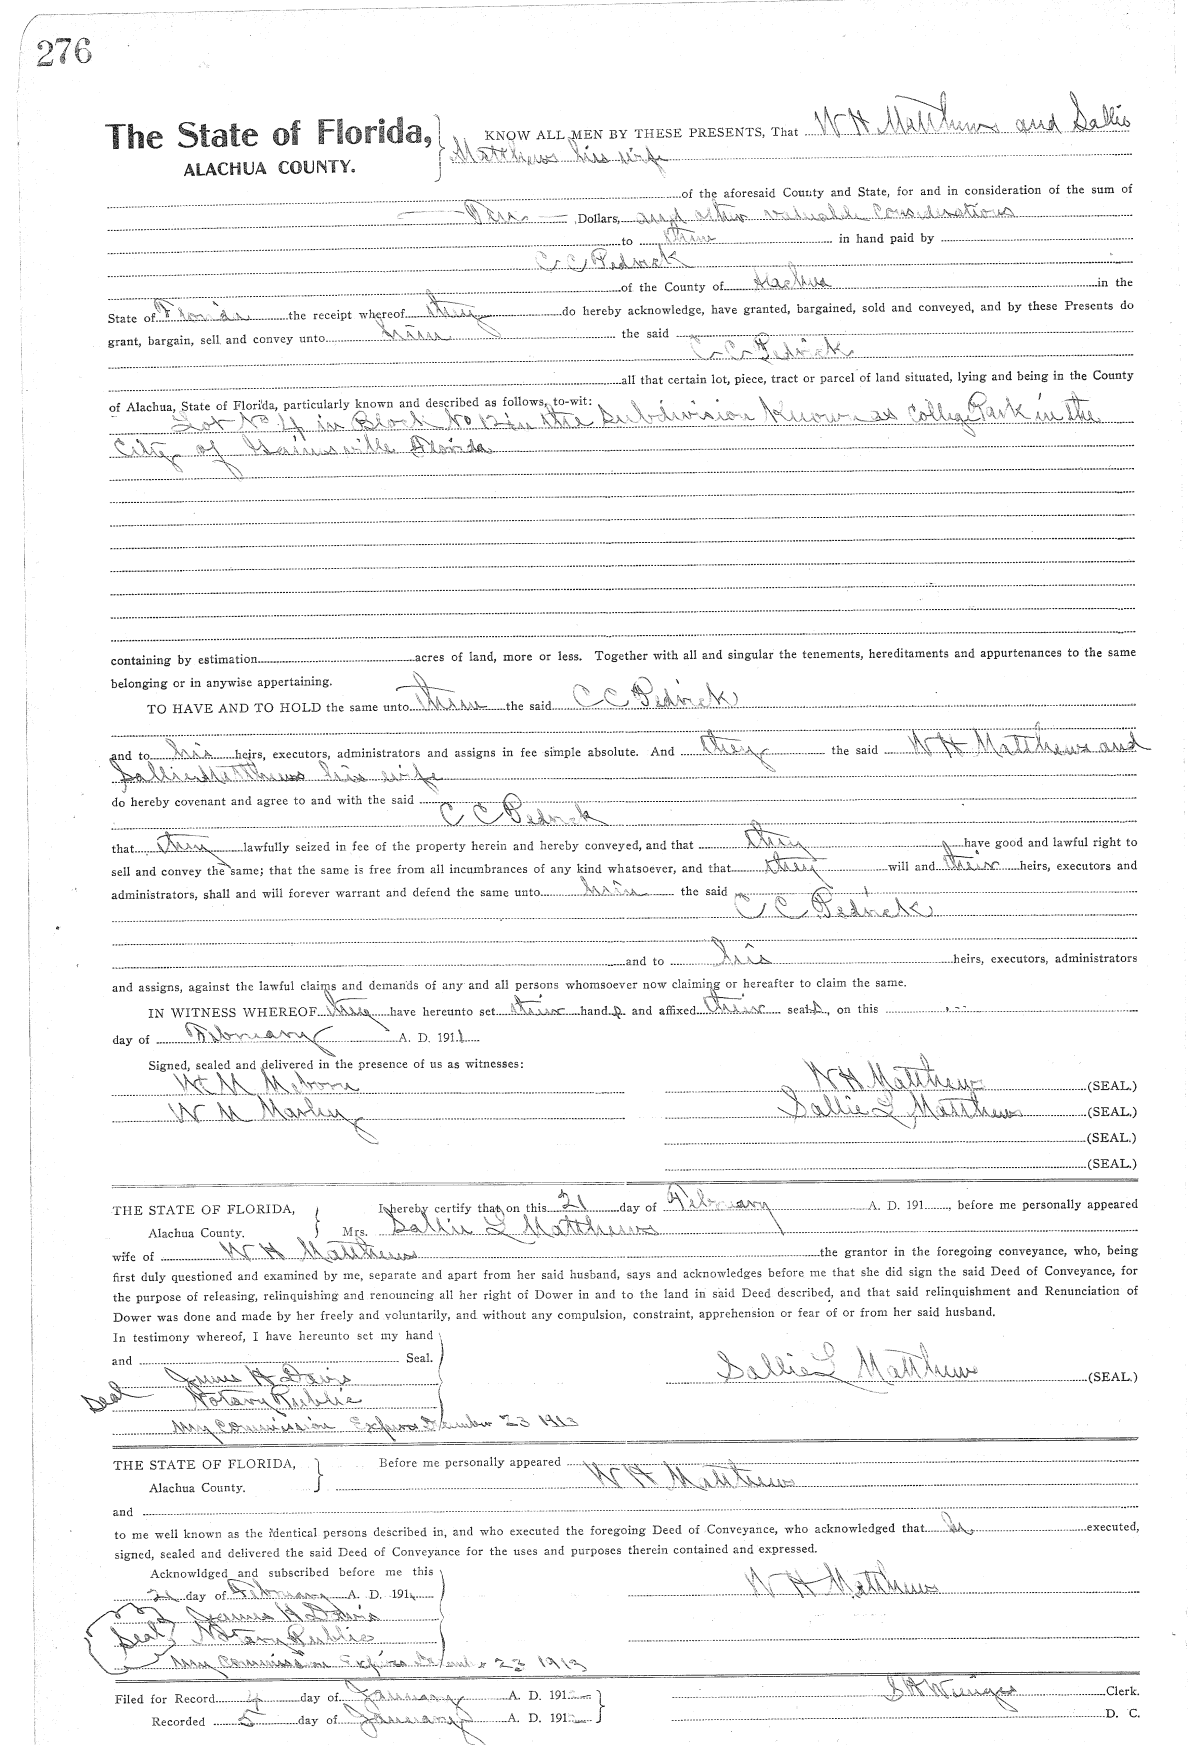 276
The State of Florida, KNOW ALL MEN BY THESE PRESENTS, That W H Matthews and Sallie
ALACHUA COUNTY. Matthews his wife
of the aforesaid County and State, for and in consideration of the sum of
Ten Dollars, and other valuable considerations
to them in hand paid by
C C Pedrick
of the County of Alachua in the
State of Florida the receipt whereof they do hereby acknowledge, have granted, bargained, sold and conveyed, and by these Presents do
grant, bargain, sell and convey unto him the said
C C Pedrick
all that certain lot, piece, tract or parcel of land situated, lying and being in the County
of Alachua, State of Florida, particularly known and described as follows, to-wit:
Lot No 4 in Block No 12 in the Subdivision Known as College Park in the
City of Gainsville Florida
containing by estimation acres of land, more or less. Together with all and singular the tenements, hereditaments and appurtenances to the same
belonging or in anywise appertaining.
TO HAVE AND TO HOLD the same unto him the said C C Pedrick
and to his heirs, executors, administrators and assigns in fee simple absolute. And they the said W H Matthews and
Sallie Matthews his wife
do hereby covenant and agree to and with the said
C C Pedrick
that they lawfully seized in fee of the property herein and hereby conveyed, and that they have good and lawful right to
sell and convey the same; that the same is free from all incumbrances of any kind whatsoever, and that they will and their heirs, executors and
administrators, shall and will forever warrant and defend the same unto him the said
C C Pedrick
and to his heirs, executors, administrators
and assigns, against the lawful claims and demands of any and all persons whomsoever now claiming or hereafter to claim the same.
IN WITNESS WHEREOF they have hereunto set their hand s and affixed their seal s, on this
day of February A. D. 1911
Signed, sealed and delivered in the presence of us as witnesses:
W H Matthews (SEAL.)
W M Sallie L Matthews (SEAL.)
(SEAL.)
(SEAL.)
THE STATE OF FLORIDA, I hereby certify that on this 21 day of February A. D. 191 , before me personally appeared
Alachua County. Mrs. Sallie L Matthews
wife of W H Matthews the grantor in the foregoing conveyance, who, being
first duly questioned and examined by me, separate and apart from her said husband, says and acknowledges before me that she did sign the said Deed of Conveyance, for
the purpose of releasing, relinquishing and renouncing all her right of Dower in and to the land in said Deed described, and that said relinquishment and Renunciation of
Dower was done and made by her freely and voluntarily, and without any compulsion, constraint, apprehension or fear of or from her said husband.
In testimony whereof, I have hereunto set my hand
and Seal.
James H Davis Sallie L Matthews (SEAL.)
Seal Notary Public
My Commission Expires December 23 1913
THE STATE OF FLORIDA, Before me personally appeared
Alachua County. W H Matthews
and
to me well known as the identical persons described in, and who executed the foregoing Deed of Conveyance, who acknowledged that he executed,
signed, sealed and delivered the said Deed of Conveyance for the uses and purposes therein contained and expressed.
Acknowldged and subscribed before me this
21 day of February A. D. 191 W H Matthews
James H Davis
Seal Notary Public
My Commission Expires December 23 1913
Filed for Record 4 day of January A. D. 191 S H Wienges Clerk.
Recorded 5 day of January A. D. 191 D. C.